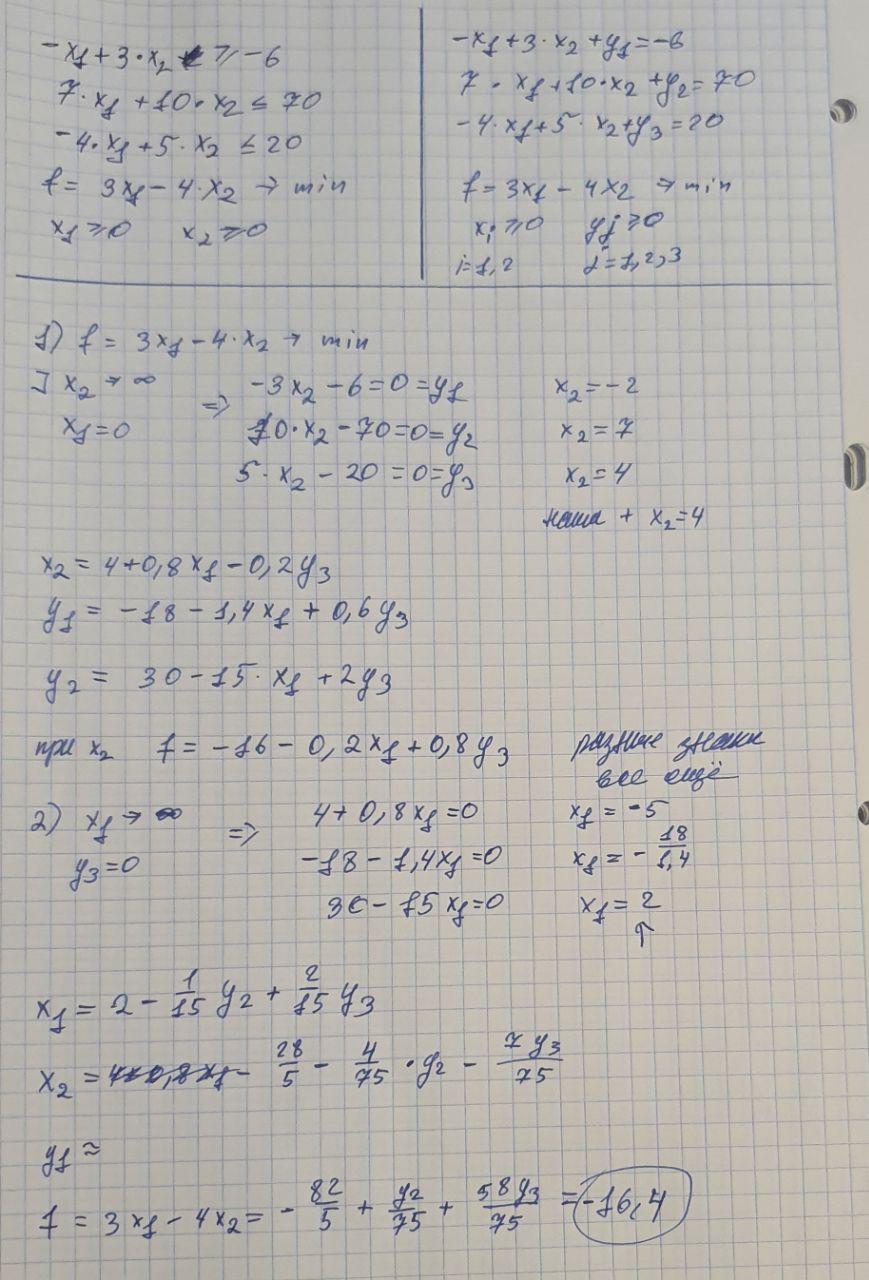 -x₁+3·x₂ ≥ -6
7·x₁+10·x₂ ≤ 70
-4·x₁+5·x₂ ≤ 20
f = 3x₁-4·x₂ → min
x₁≥0 x₂≥0
-x₁+3·x₂+y₁=-6
7·x₁+10·x₂+y₂=70
-4·x₁+5·x₂+y₃=20
f=3x₁-4x₂ → min
xᵢ≥0 yⱼ≥0
i=1,2 j=1,2,3
1) f = 3x₁-4·x₂ → min
] x₂ → ∞ ⇒ -3x₂-6=0=y₁ x₂=-2
x₁=0 10·x₂-70=0=y₂ x₂=7
5·x₂-20=0=y₃ x₂=4
наша + x₂=4
x₂=4+0,8x₁-0,2y₃
y₁ = -18-1,4x₁+0,6y₃
y₂ = 30-15·x₁+2y₃
при x₂ f=-16-0,2x₁+0,8y₃ разные знаки
все ещё
2) x₁ → ∞ ⇒ 4+0,8x₁=0 x₁=-5
y₃=0 -18-1,4x₁=0 x₁=-18/1,4
30-15x₁=0 x₁=2
↑
x₁ = 2 - 1/15 y₂ + 2/15 y₃
x₂ = 28/5 - 4/75 · y₂ - 7y₃/75
y₁ ≈
f = 3x₁-4x₂ = -82/5 + y₂/75 + 58y₃/75 = -16,4